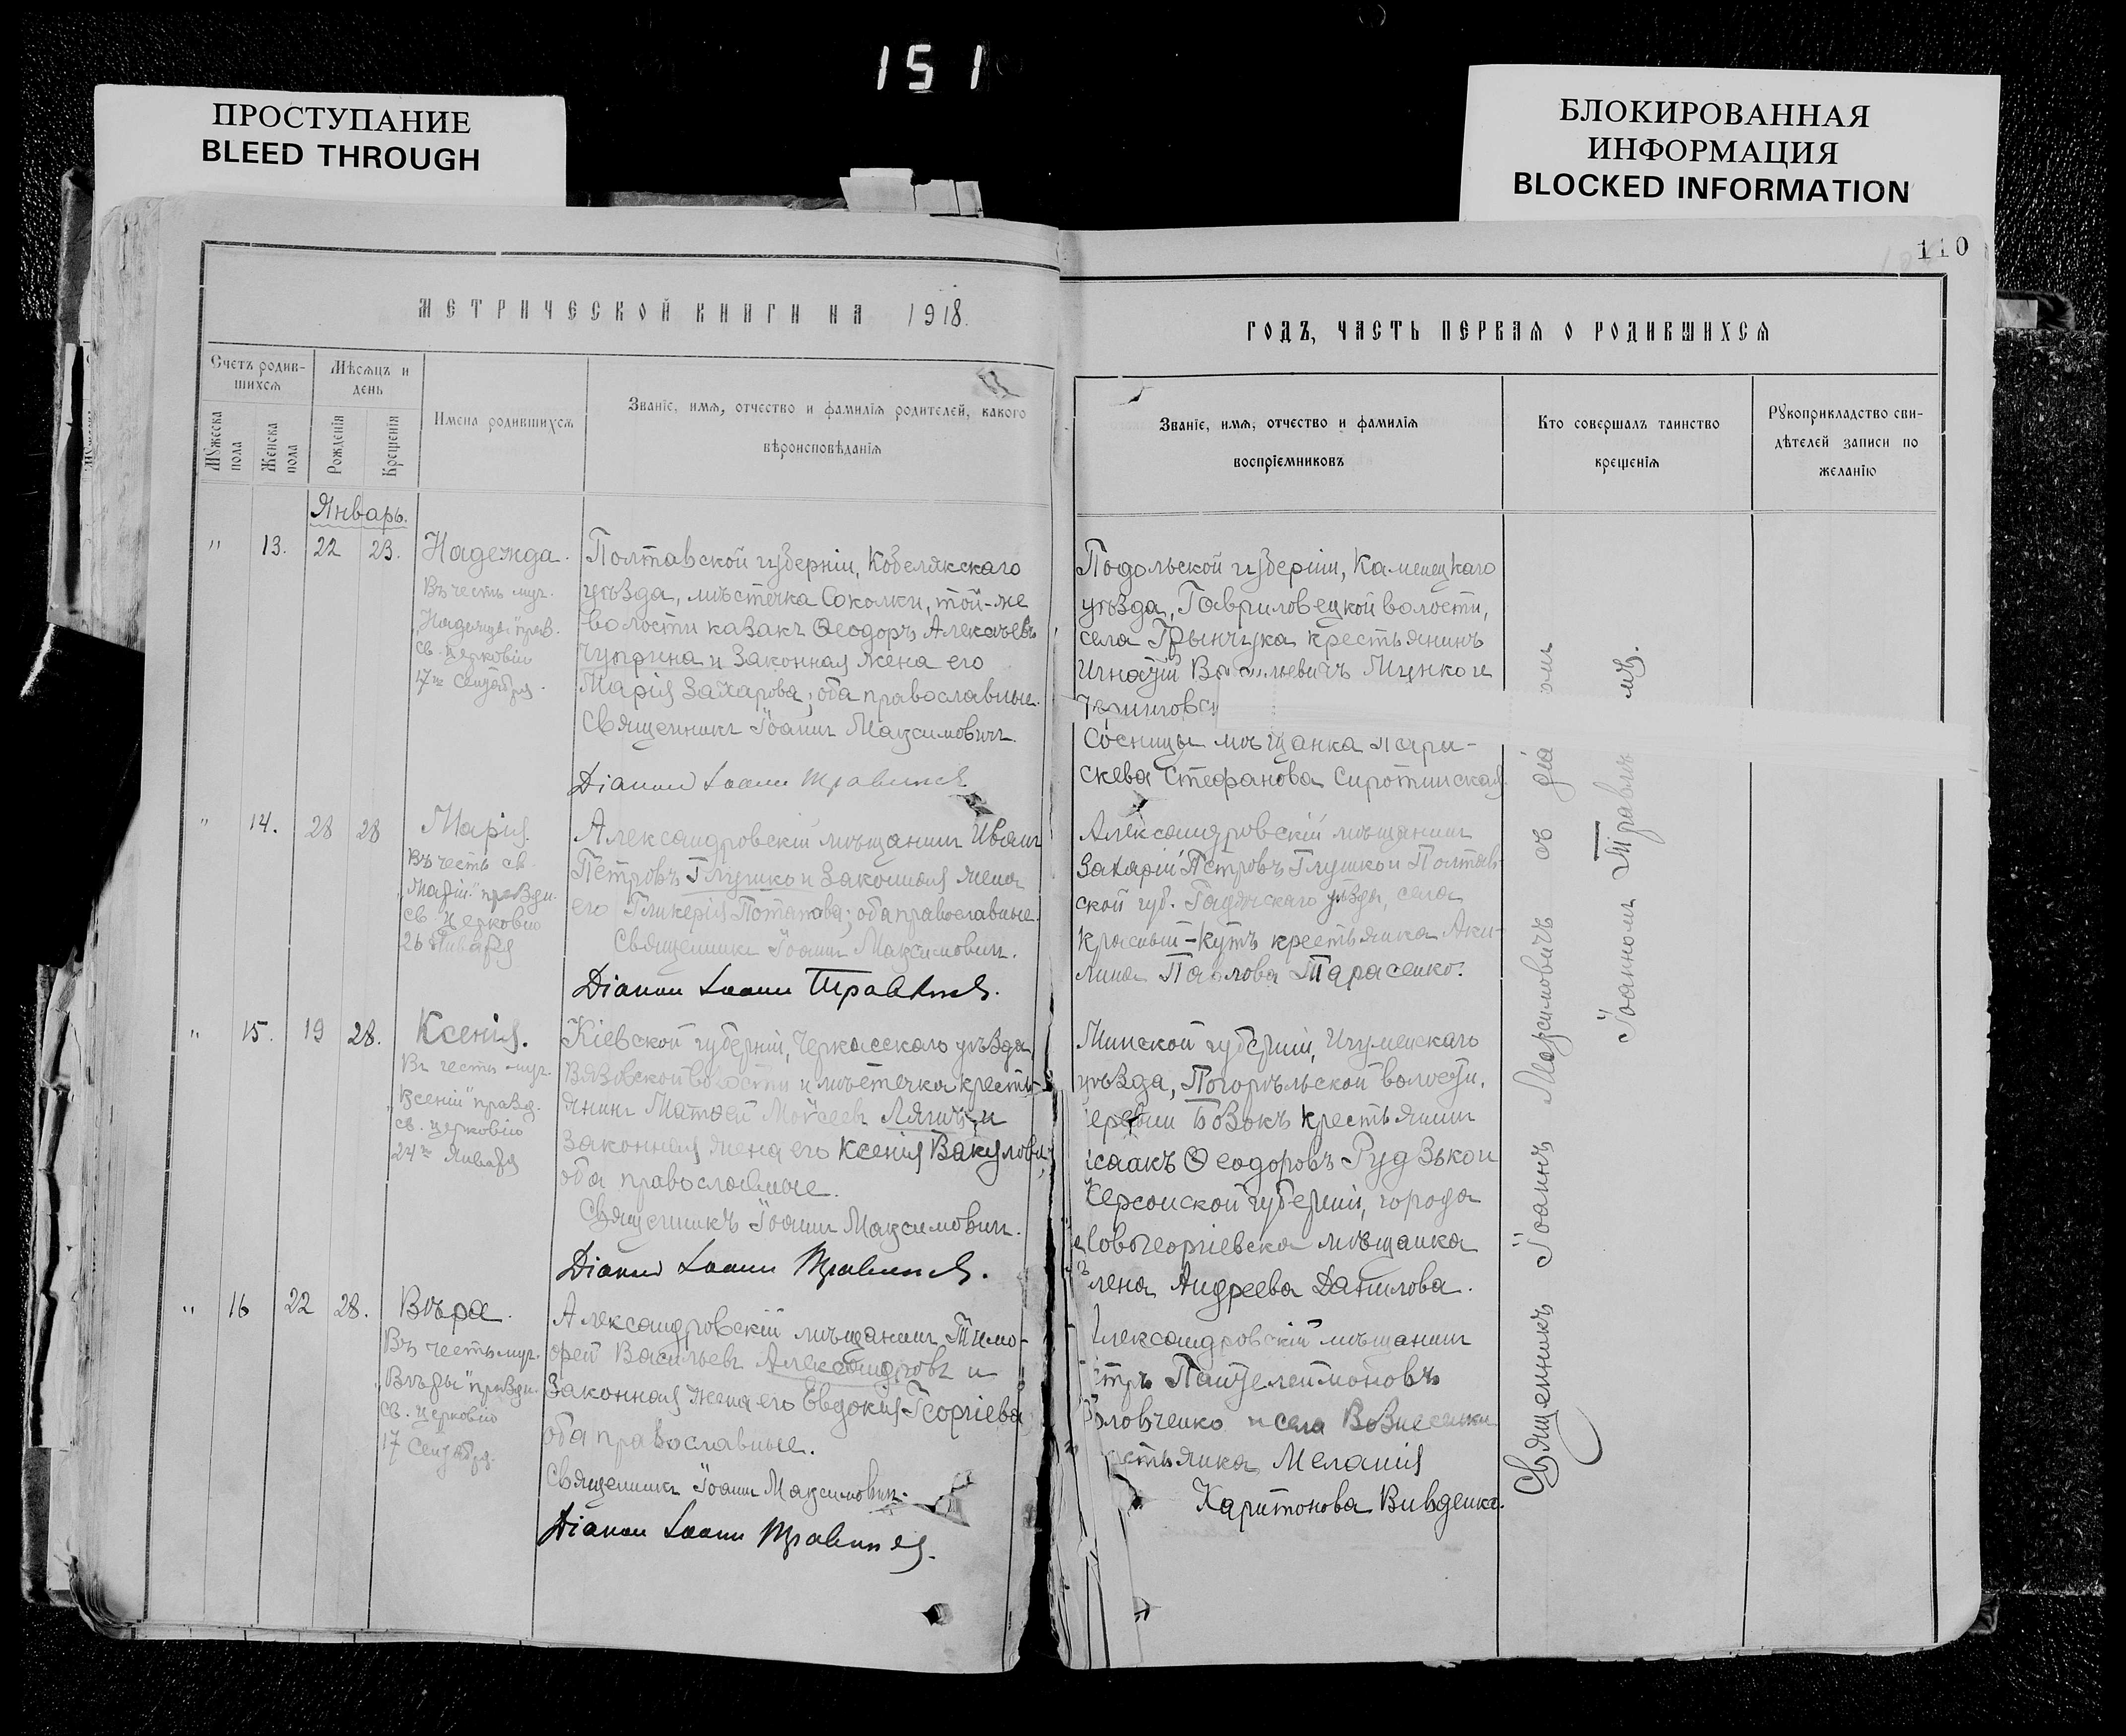 151
ПРОСТУПАНИЕ
BLEED THROUGH
БЛОКИРОВАННАЯ
ИНФОРМАЦИЯ
BLOCKED INFORMATION
110
МЕТРИЧЕСКОЙ КНИГИ НА 1918.
Счетъ родив-
шихся
Мѣсяцъ и
день
Мужеска
пола
Женска
пола
Рожденія
Крещенія
Имена родившихся
Званіе, имя, отчество и фамилія родителей, какого
вѣроисповѣданія
Январь.
" 13. 22 23. Надежда.
Въ честь муч.
"Надежды" празд.
св. церковію
17го Сентября.
Полтавской губерніи, Кобелякскаго
уѣзда, мѣстечка Соколки, той-же
волости казакъ Ѳеодоръ Алексѣевъ
Чуприна и законная жена его
Марія Захарова; оба православные.
Священникъ Іоаннъ Максимовичъ.
Діаконъ Іоаннъ
" 14. 28 28 Марія.
Въ честь св.
"Маріи" праздн.
св. церковію
26 Января
Александровскій мѣщанинъ Иванъ
Петровъ Глушко и законная жена
его Гликерія Потапова; оба православные.
Священникъ Іоаннъ Максимовичъ.
Діаконъ Іоаннъ
" 15. 19 28. Ксенія.
Въ честь муч.
"Ксеніи" празд.
св. церковію
24го Января
Кіевской губерніи, Черкасскаго уѣзда,
Вязовской волости и мѣстечка кресть-
янинъ Матѳей Моѵсеевъ Лягичъ и
законная жена его Ксенія Вакулова;
оба православные.
Священникъ Іоаннъ Максимовичъ.
Діаконъ Іоаннъ
" 16 22 28. Вѣра.
Въ честь муч.
"Вѣры" праздн.
св. церковію
17 Сентября.
Александровскій мѣщанинъ Тимо-
фей Васильевъ Александровъ и
законная жена его Евдокія Георгіева
оба православные.
Священникъ Іоаннъ Максимовичъ.
Діаконъ Іоаннъ
ГОДЪ, ЧАСТЬ ПЕРВАЯ О РОДИВШИХСЯ
Званіе, имя, отчество и фамилія
воспріемниковъ
Кто совершалъ таинство
крещенія
Рукоприкладство сви-
дѣтелей записи по
желанію
Подольской губерніи, Каменецкаго
уѣзда, Гавриловецкой волости,
села Грынчука крестьянинъ
Игнатій Васильевичъ Мунко и
Сосницы мѣщанка Пара-
скева Стефанова Сиротинская
Александровскій мѣщанинъ
Захарій Петровъ Глушко и Полтав-
ской губ. Гадячскаго уѣзда, села
Красный-Кутъ крестьянка Аки-
лина Павлова Тарасенко.
Минской губерніи, Игуменскаго
уѣзда, Погорѣльской волости,
крестьянинъ
Исаакъ Ѳеодоровъ и
Херсонской губерніи, города
Новогеоргіевска мѣщанка
Елена Андреева Данилова.
Александровскій мѣщанинъ
Пантелеимоновъ
Головченко и села Вознесенки
крестьянка Меланія
Харитонова Вивденко.
Священникъ Іоаннъ Максимовичъ съ діа
Іоанномъ